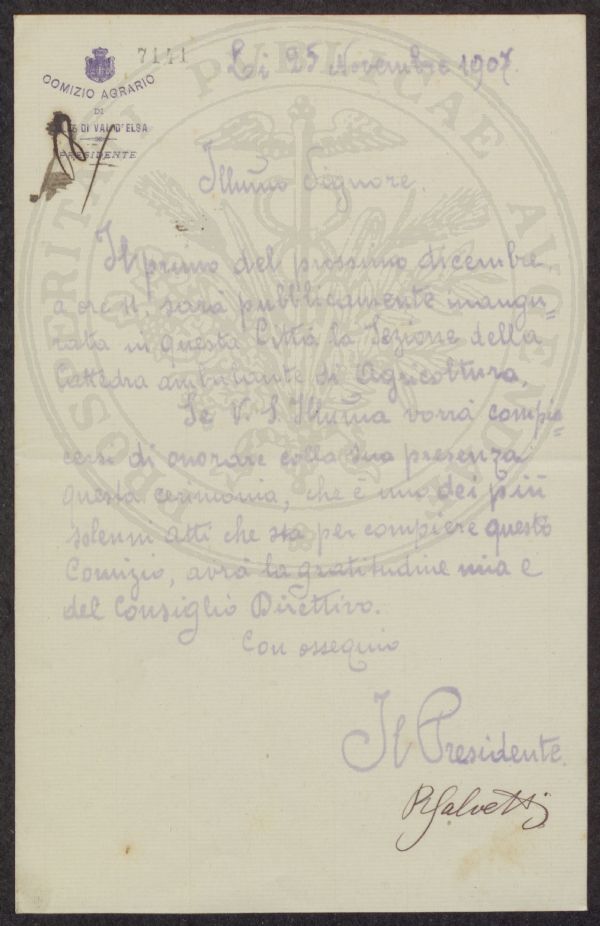 7141
Li 25 Novembre 1907.
COMIZIO AGRARIO
DI
DI VAL D'ELSA
PRESIDENTE
Illumo Signore.
Il primo del prossimo dicembre,
a ore 11. sarà pubblicamente inaugu=
rata in questa Città la Sezione della
Cattedra ambulante di Agricoltura.
Se V. S. Illuma vorrà compia=
cersi di onorare colla sua presenza
questa cerimonia, che è uno dei più
solenni atti che sta per compiere questo
Comizio, avrà la gratitudine mia e
del Consiglio Direttivo.
Con ossequio
Il Presidente.
R Salvetti
PROSPERITATI PUBLICAE AUGENDAE